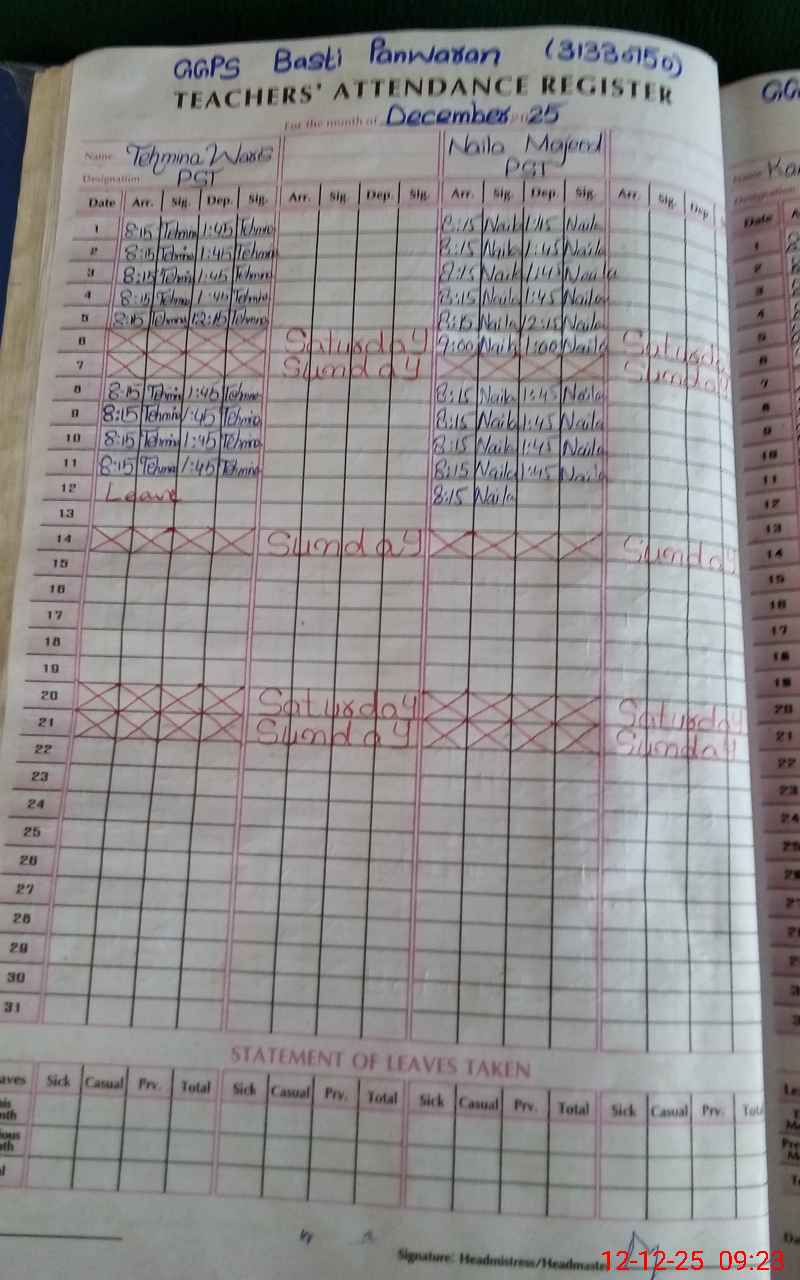 GGPS Basti Panwaran (31330150)
TEACHERS' ATTENDANCE REGISTER
For the month of December 25
Name Tehmina Naila Majeed
Designation PST PST
Date Arr. Sig. Dep. Sig. Arr. Sig. Dep. Sig. Arr. Sig. Dep. Sig. Arr. Sig. Dep.
1 8:15 Tehmin 1:45 Tehmin 8:15 Naila 1:45 Naila
2 8:15 Tehmin 1:45 Tehmin 8:15 Naila 1:45 Naila
3 8:15 Tehmin 1:45 Tehmin 8:15 Naila 1:45 Naila
4 8:15 Tehmin 1:45 Tehmin 8:15 Naila 1:45 Naila
5 8:15 Tehmin 12:15 Tehmin 8:15 Naila 12:15 Naila
6 Saturday 9:00 Naila 1:00 Naila Saturday
7 Sunday Sunday
8 8:15 Tehmin 1:45 Tehmin 8:15 Naila 1:45 Naila
9 8:15 Tehmin 1:45 Tehmin 8:15 Naila 1:45 Naila
10 8:15 Tehmin 1:45 Tehmin 8:15 Naila 1:45 Naila
11 8:15 Tehmin 1:45 Tehmin 8:15 Naila 1:45 Naila
12 Leave 8:15 Naila
13
14 Sunday Sunday
15
16
17
18
19
20 Saturday Saturday
21 Sunday Sunday
22
23
24
25
26
27
28
29
30
31
STATEMENT OF LEAVES TAKEN
aves Sick Casual Prv. Total Sick Casual Prv. Total Sick Casual Prv. Total Sick Casual Prv. Tot
Signature: Headmistress/Headmaste
12-12-25 09:23